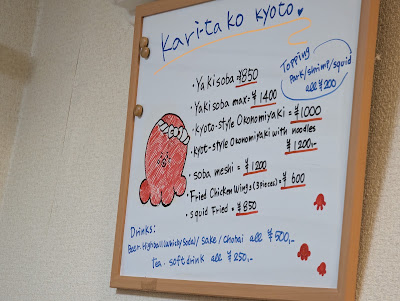 Karitako Kyoto
Topping
Pork/shrimp/squid
all ¥200
・Yakisoba ¥850
・Yakisoba max= ¥1400
・kyoto-style Okonomiyaki = ¥1000
・Kyot-style Okonomiyaki with noodles
¥1200,-
・soba meshi = ¥1200
・Fried Chicken Wings (3pieces) = ¥600
・squid Fried = ¥850
Drinks:
Beer. Highball (whisky Soda) / Sake / Chotai all ¥500,-
Tea. soft drink all ¥250,-